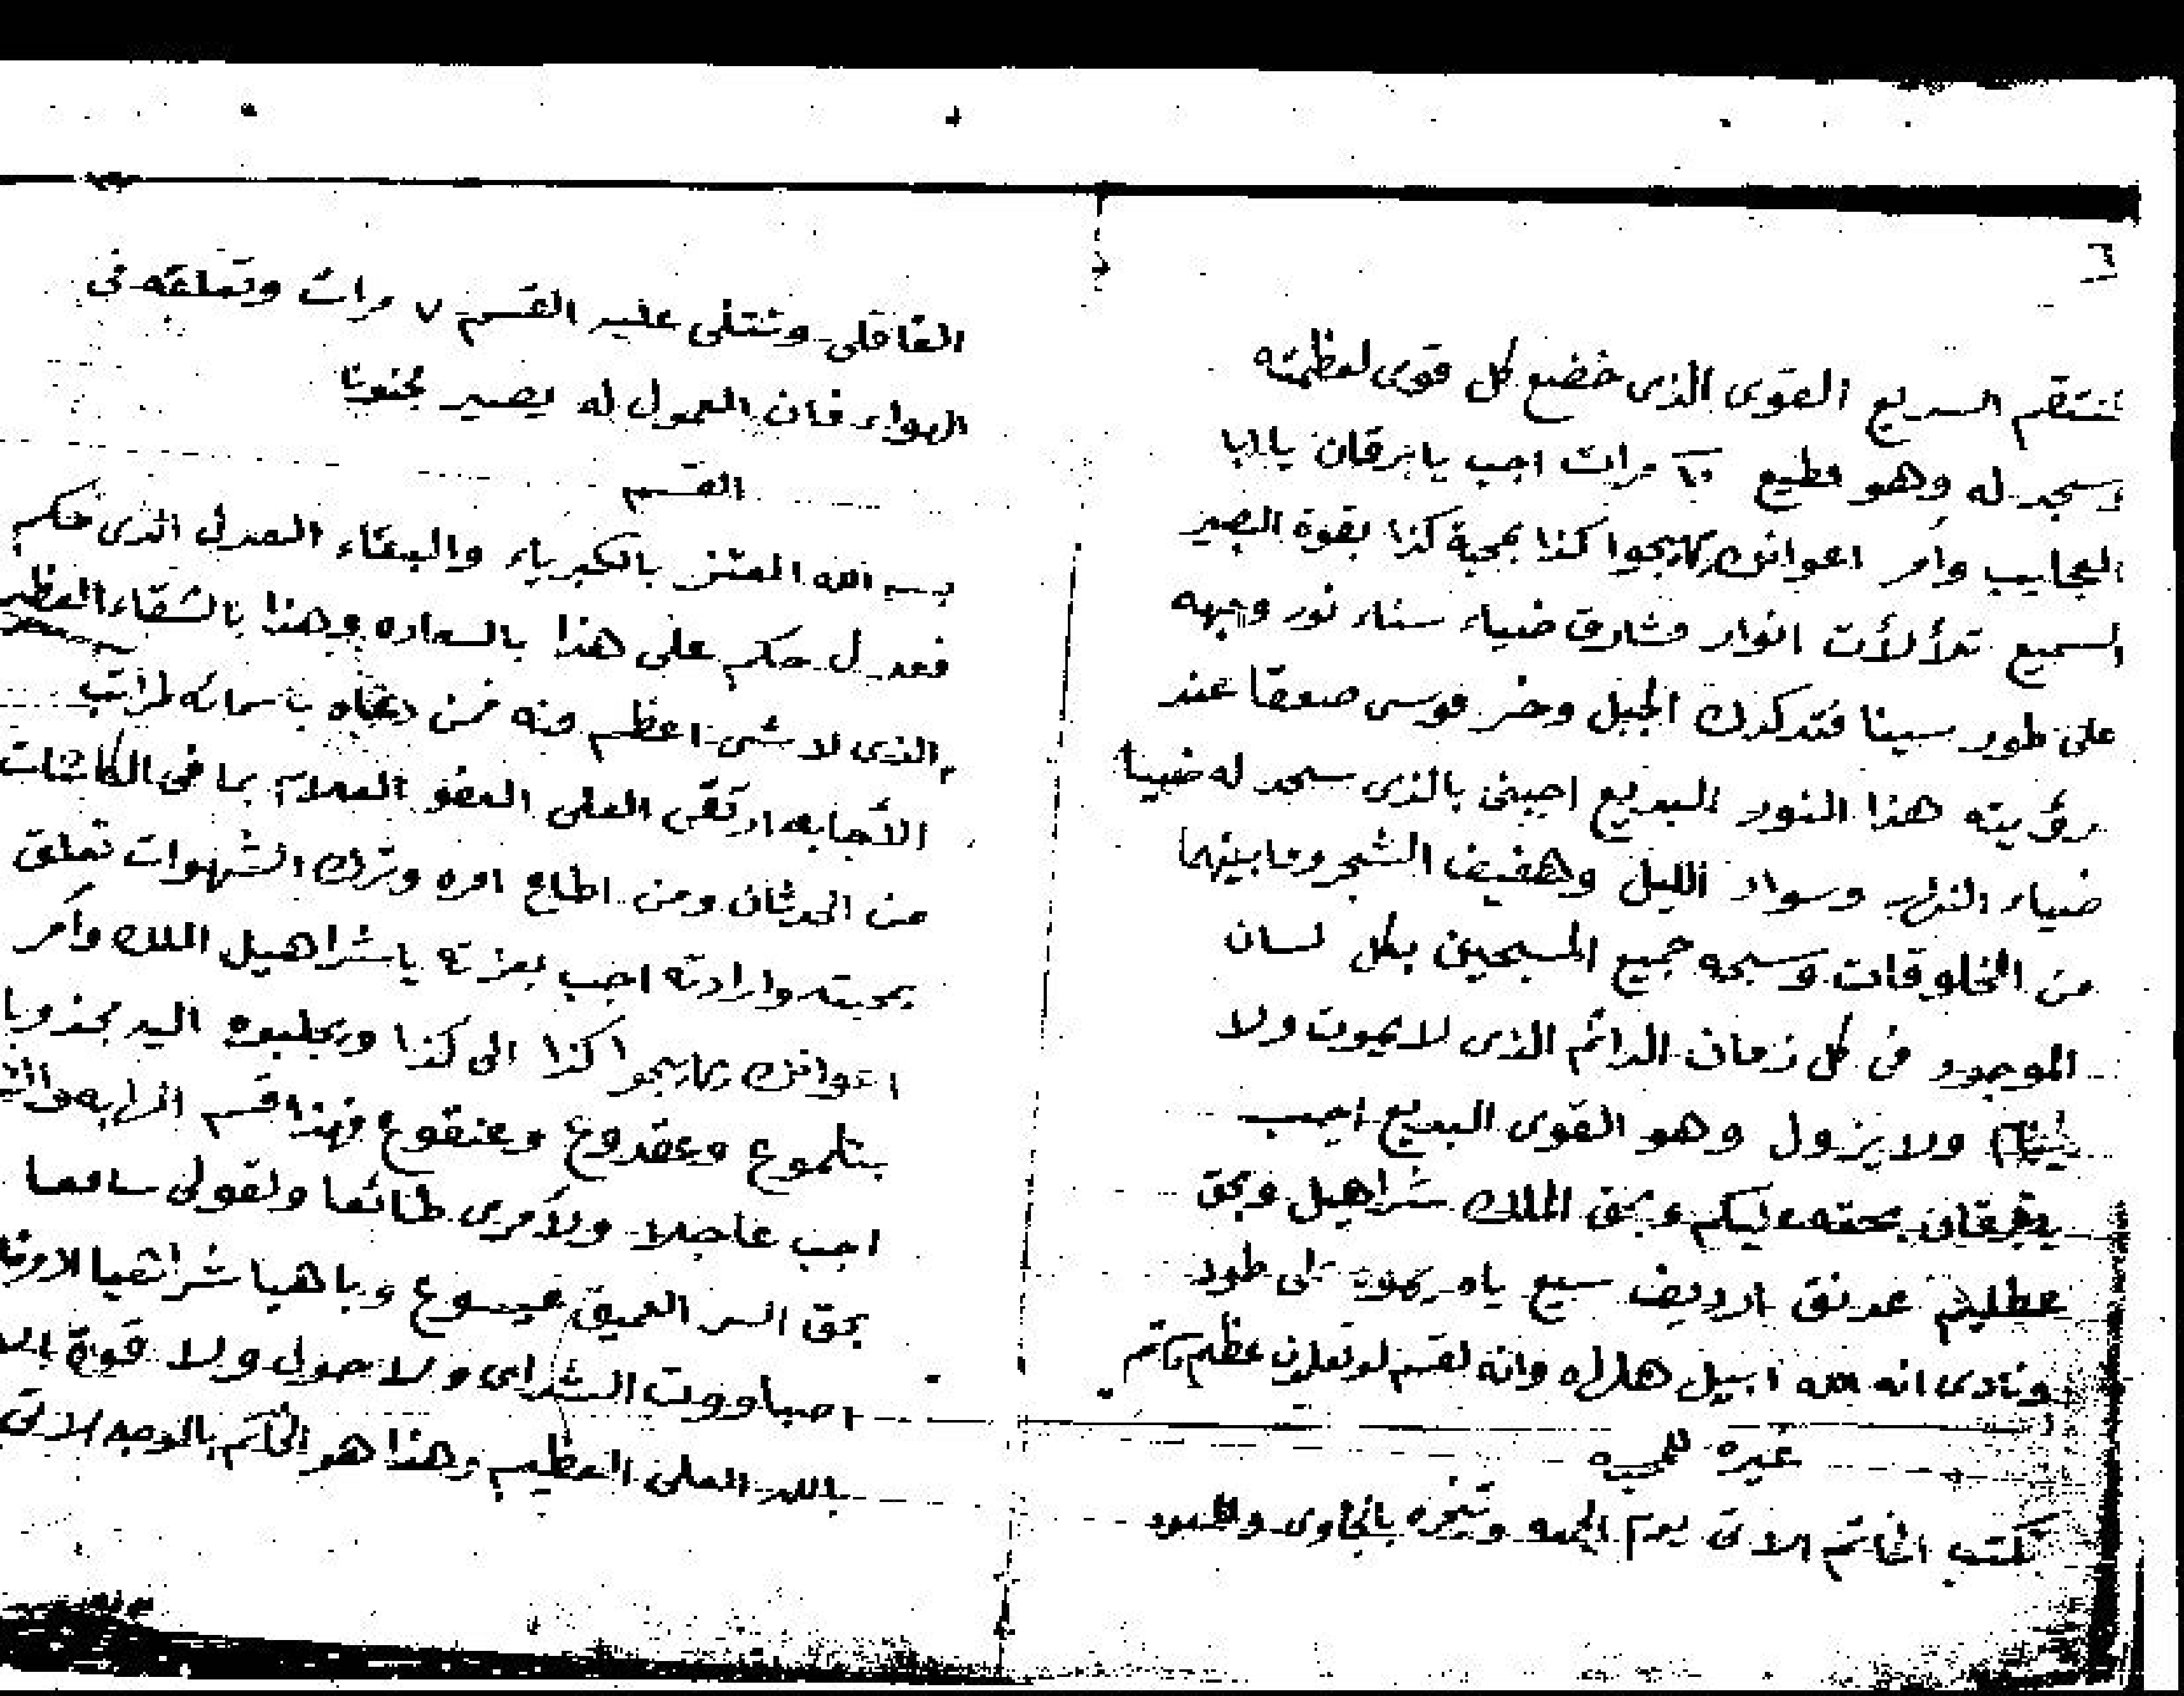 ٦
نتقم السريع القوى الذى خضع كل قوى لعظمته
وسجد له وهو مطيع مرات اجب يا برقان يا ابا
العجايب وأمر اعوانك يهيجوا كذا بمحبة كذا بقوة البصير
السميع تلألأت انوار مشارق ضياء سناء نور وجهه
على طور سينا فتدكدك الجبل وخر موسى صعقا عند
رؤيته هذا النور البديع اجبنى بالذى سجد له ضبيا
ضياء النهار وسواد الليل وهفيف الشجر وما بينهما
من المخلوقات وسبحه جميع المسبحين بكل لسان
الموجود فى كل زمان الدائم الذى لا يموت ولا
ولا يزول وهو القوى البديع اجب
يا برقان بحقه عليكم وبحق الملك شراهيل وبحق
سبع على طور
ونادى انه الله ابيل هلله وانه لقسم لو تعلمون عظيم تم
غيره للمحبه
تكتب الخاتم الاتى يوم الجمعه وتبخره بالجاوى والعود
القاقلى وتتلى عليه القسم ٧ مرات وتعلقه فى
الهواء فان المعمول له يصير مجنونا
القسم
بسم الله المعتز بالكبرياء والبقاء العدل الذى حكم
فعدل حكم على هذا بالسعاده وهذا بالشقاء العظيم
الذى لا شى اعظم منه فمن دعاه باسمائه لمراتب
الاجابه ارتقى العلى العفو العلام بما فى الكائنات
من الحدثان ومن اطاع امره وترك الشهوات تعلق
بمحبته وارادته اجب بعزته يا شراهيل الملك وأمر
اعوانك يهيجوا كذا الى كذا ويجلبوه اليه مجذوبا
بتلموع وعقدوع وعنقوع فهذا قسم
اجب عاجلا ولأمرى طائعا ولقولى سامعا
بحق السر العميق عيسوع وباهيا شراهيا الادوناى
اصباووت الشداى ولا حول ولا قوة الا
بالله العلى العظيم وهذا هو الخاتم بالوجه الاتى